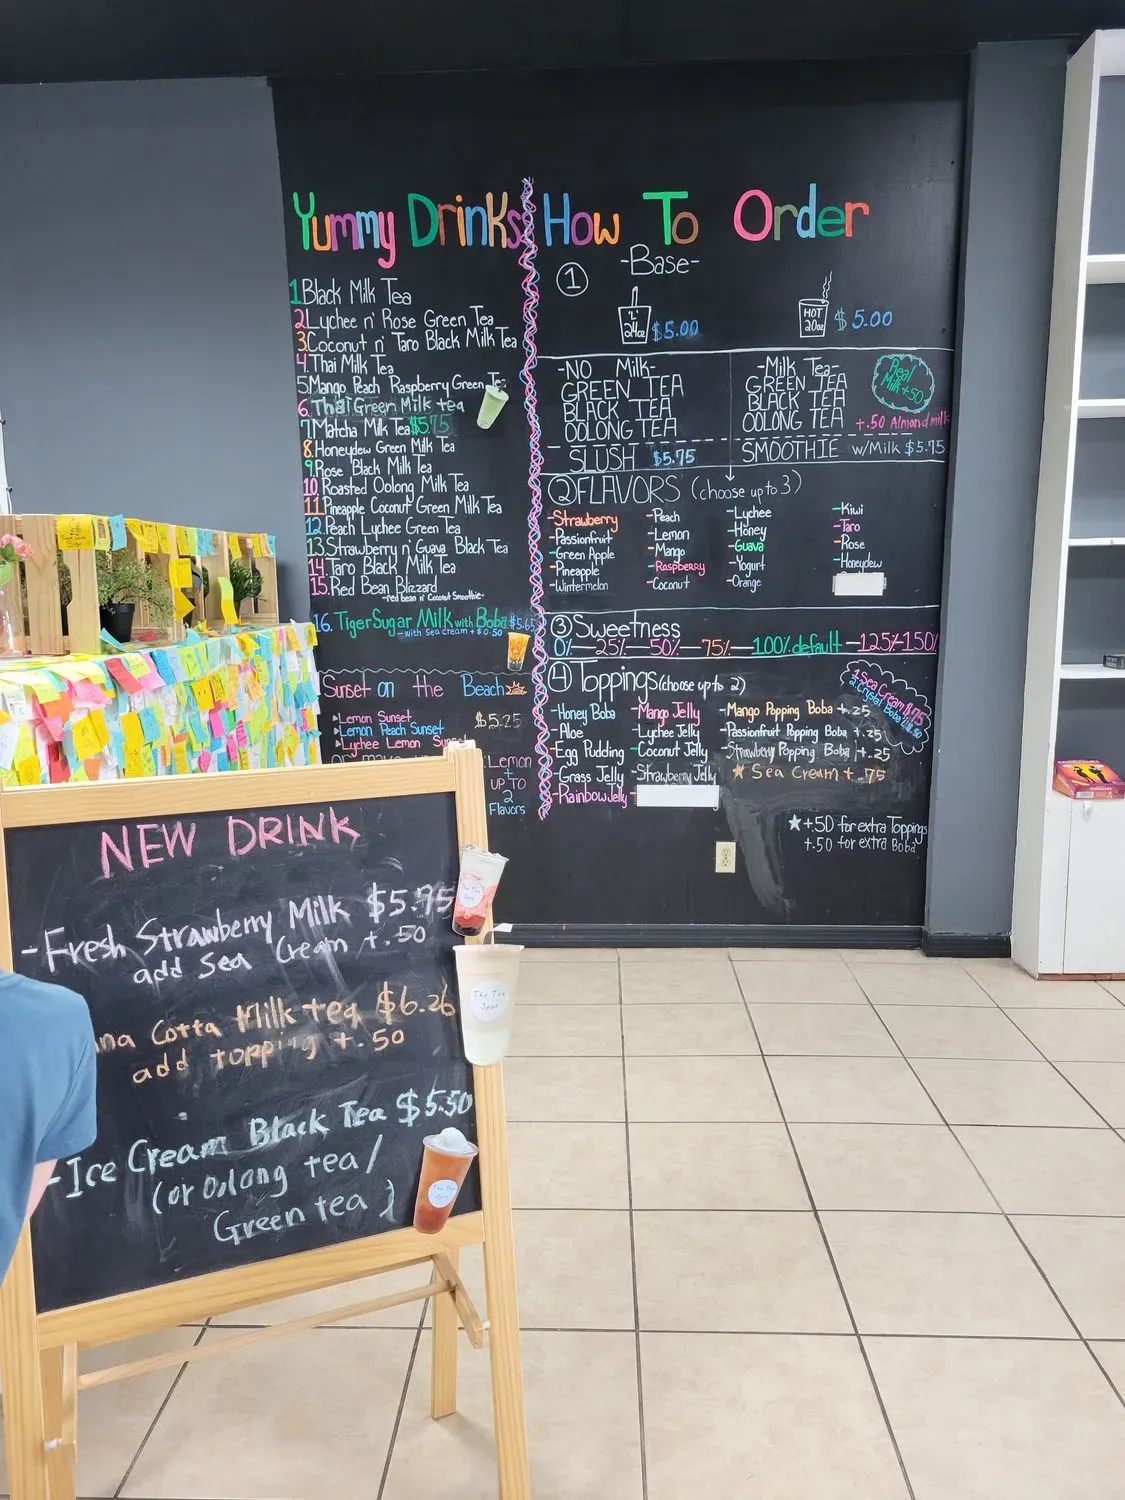 Yummy Drinks
1 Black Milk Tea
2 Lychee n' Rose Green Tea
3 Coconut n' Taro Black Milk Tea
4. Thai Milk Tea
5. Mango Peach Raspberry Green Tea
6. Thai Green Milk tea
7. Matcha Milk Tea $5.75
8. Honeydew Green Milk Tea
9. Rose Black Milk Tea
10. Roasted Oolong Milk Tea
11. Pineapple Coconut Green Milk Tea
12. Peach Lychee Green Tea
13. Strawberry n' Guava Black Tea
14. Taro Black Milk Tea
15. Red Bean Blizzard
-red bean n' Coconut Smoothie-
16. Tiger Sugar Milk with Boba $5.65
-with Sea cream + $0.50
Sunset on the Beach
Lemon Sunset $5.25
Lemon Peach Sunset
Lychee Lemon Sunset
Lemon
+
UP TO
2
Flavors
How To Order
1 -Base-
"L"
24oz $5.00
HOT
20oz $5.00
-NO Milk-
GREEN TEA
BLACK TEA
OOLONG TEA
SLUSH $5.75
-Milk Tea-
GREEN TEA
BLACK TEA
OOLONG TEA
Real
Milk +.50
+.50 Almond milk
SMOOTHIE w/Milk $5.75
2 FLAVORS (choose up to 3)
-Strawberry
-Passionfruit
-Green Apple
-Pineapple
-Wintermelon
-Peach
-Lemon
-Mango
-Raspberry
-Coconut
-Lychee
-Honey
-Guava
-Yogurt
-Orange
-Kiwi
-Taro
-Rose
-Honeydew
3 Sweetness
0%—25%—50%—75%—100% default—125%-150%
4 Toppings (choose up to 2)
-Honey Boba
-Aloe
-Egg Pudding
-Grass Jelly
-Rainbow Jelly
-Mango Jelly
-Lychee Jelly
-Coconut Jelly
-Strawberry Jelly
-Mango Popping Boba +.25
-Passionfruit Popping Boba +.25
-Strawberry Popping Boba +.25
★ Sea Cream +.75
1. Sea Cream $.75
2. Crystal Boba
★ +.50 for extra Toppings
+.50 for extra Boba
NEW DRINK
-Fresh Strawberry Milk $5.75
add Sea Cream +.50
na Cotta Milk tea $6.26
add topping +.50
-Ice Cream Black Tea $5.50
(or Oolong tea/
Green tea}
The Tea
Spot
The Tea
Spot
The Tea
Spot